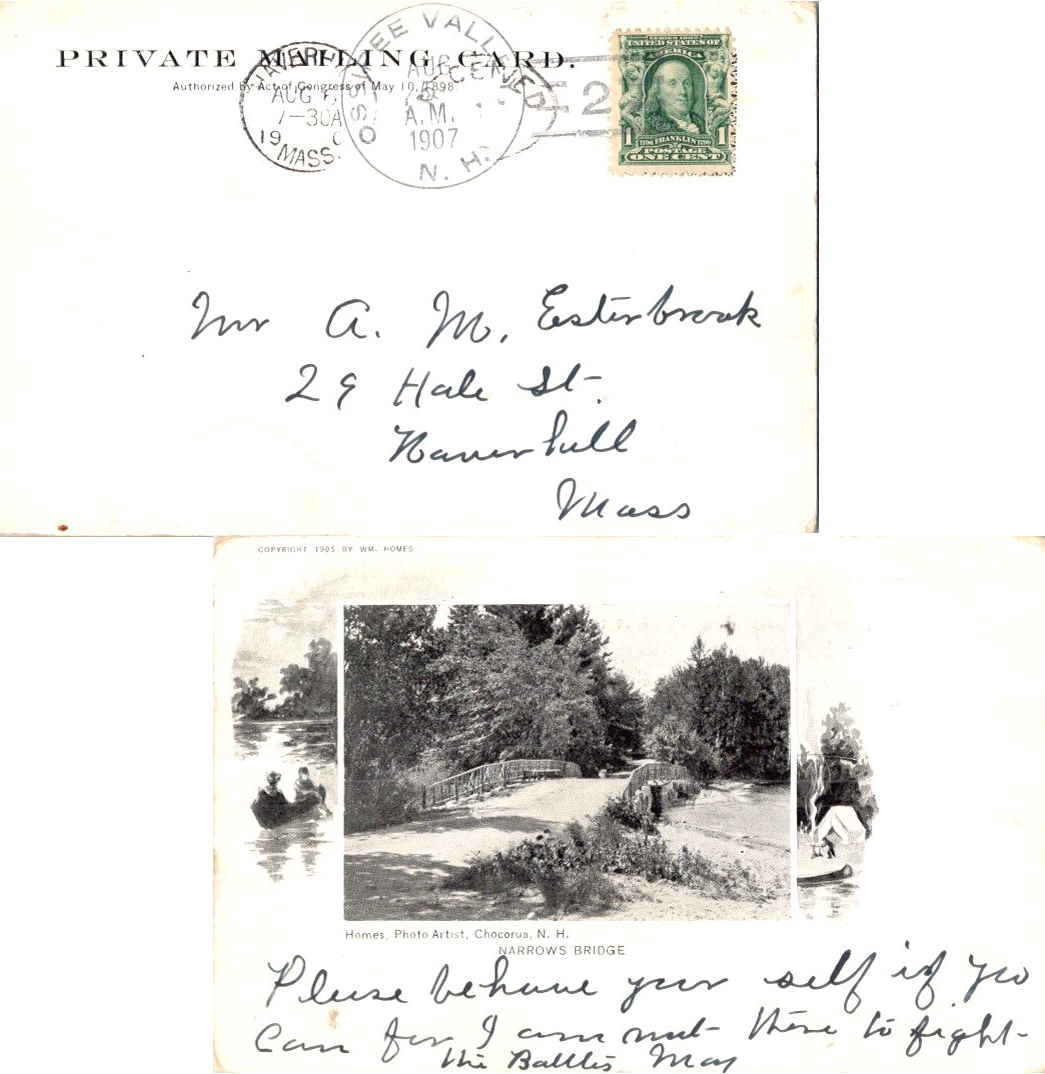 PRIVATE MAILING CARD.
Authorized by Act of Congress of May 10, 1898
HAVERH
AUG
7-30A
19
MASS.
RECEIVED
OSSIPEE VALLEY
AUG
A.M.
1907
N. H.
2
SERIES 1902
UNITED STATES OF
AMERICA
1 FRANKLIN 1
POSTAGE
ONE CENT
Mr A. M. Esterbrook
29 Hale St.
Haverhill
Mass
COPYRIGHT 1905 BY WM. HOMES
Homes, Photo Artist, Chocorua, N. H.
NARROWS BRIDGE
Please behave your self if you
Can for I am not there to fight
the Battles May